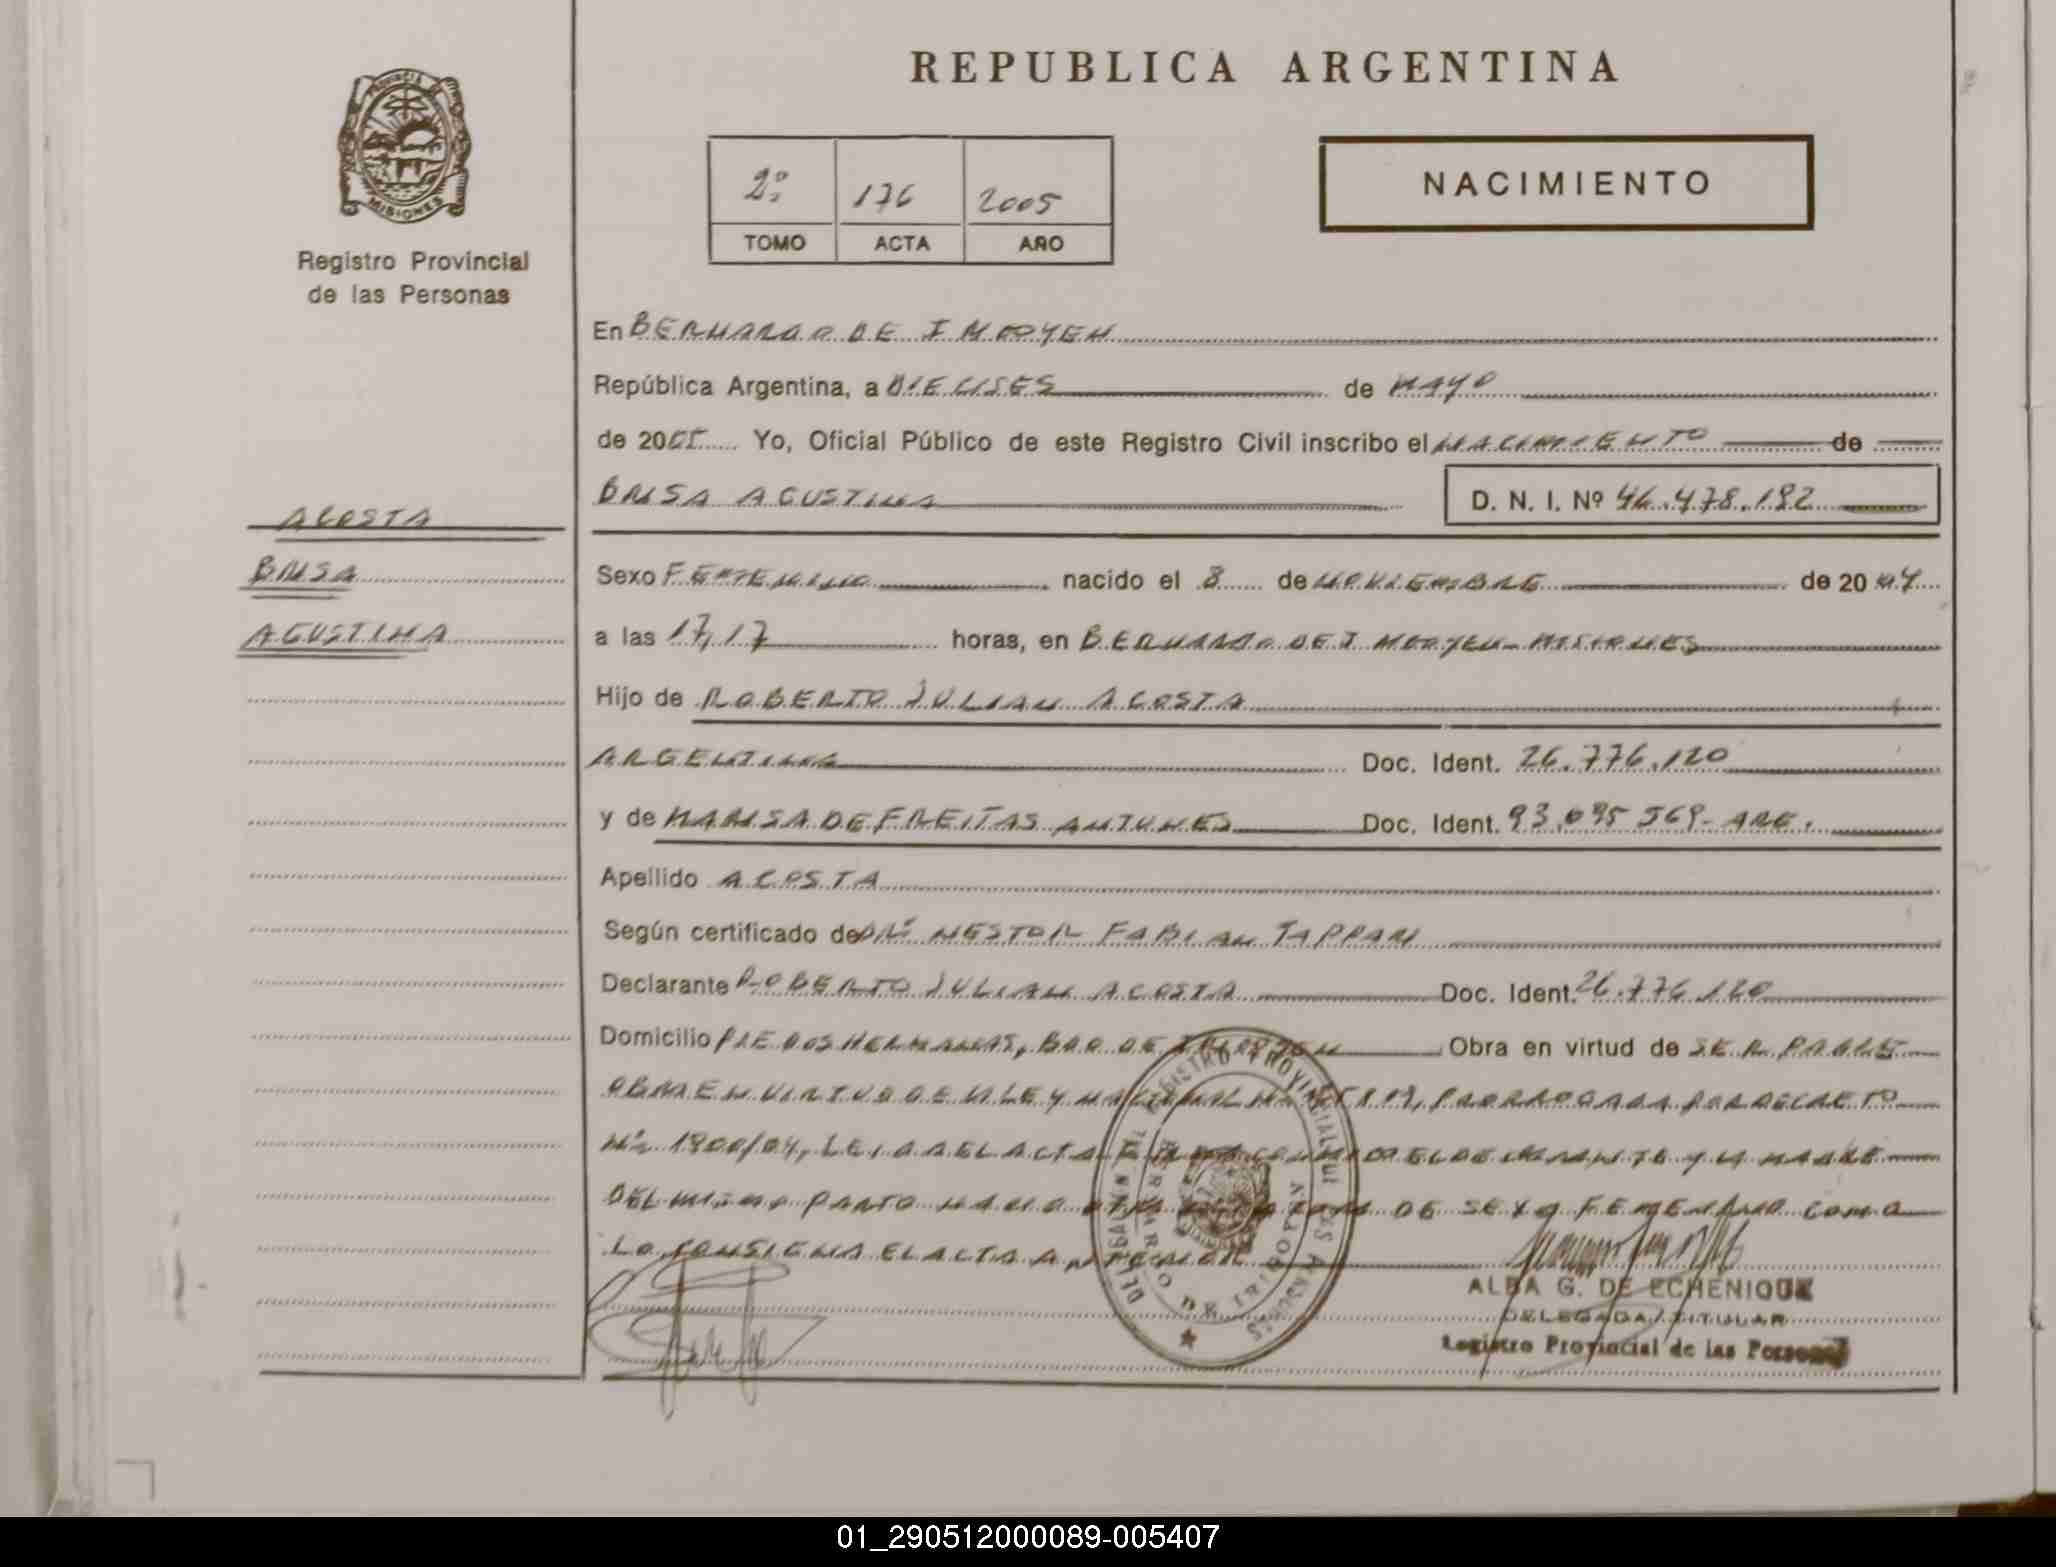 REPUBLICA ARGENTINA
PROVINCIA DE
MISIONES
Registro Provincial
de las Personas
2º 176 2005
TOMO ACTA AÑO
NACIMIENTO
En BERNARDO DE IRIGOYEN
República Argentina, a DIECISES de MAYO
de 2005 Yo, Oficial Público de este Registro Civil inscribo el NACIMIENTO de
BRISA AGUSTINA D. N. I. Nº 46.478.192
ACOSTA
BRISA
AGUSTINA
Sexo FEMENINO nacido el 8 de NOVIEMBRE de 2004
a las 17,17 horas, en BERNARDO DE IRIGOYEN - MISIONES
Hijo de ROBERTO JULIAN ACOSTA
ARGENTINO Doc. Ident. 26.776.120
y de MARISA DE FREITAS ANTUNES Doc. Ident. 93.095 569- ARG.
Apellido ACOSTA
Según certificado de DR. NESTOR FABIAN TAPPARI
Declarante ROBERTO JULIAN ACOSTA Doc. Ident. 26.776.120
Domicilio PJE DOS HERMANAS, BDO DE IRIGOYEN Obra en virtud de SER PADRE
OBRA EN VIRTUD DE LA LEY NACIONAL Nº PRORROGADA POR DECRETO
Nº 1900/04, LEIDA EL ACTA LA EL DECLARANTE Y LA MADRE
DEL NIÑO PARTO DE SEXO FEMENINO COMO
LO CONSIGNA EL ACTA ANTERIOR
DELEGACION REGISTRO PROVINCIAL DE LAS PERSONAS
BERNARDO DE IRIGOYEN
ALBA G. DE ECHENIQUE
DELEGADA TITULAR
Registro Provincial de las Personas
01_290512000089-005407